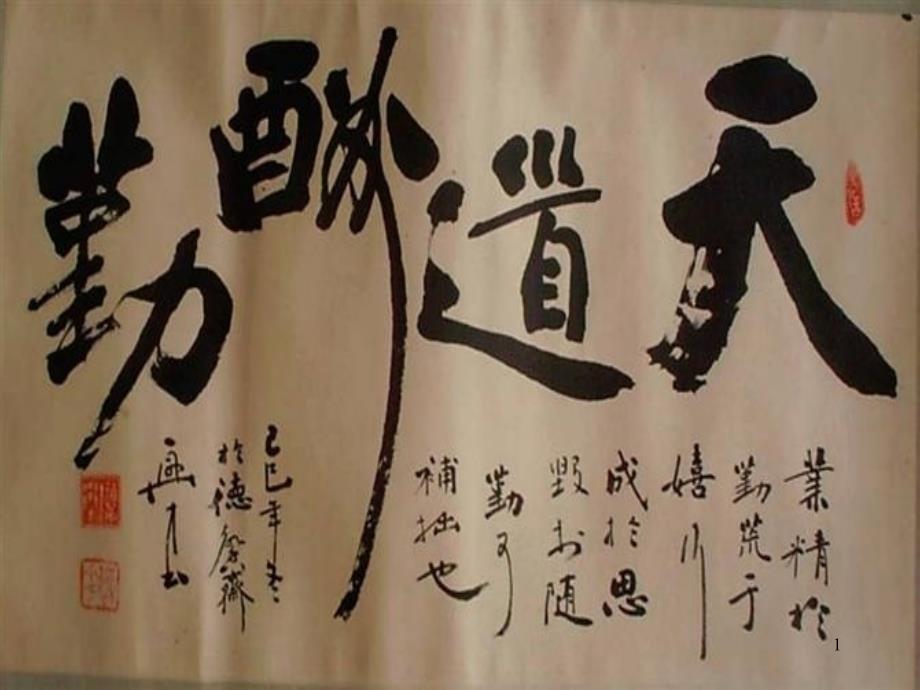 天道酬勤
業精於
勤荒于
嬉行
成於思
毀於随
勤可
補拙也
己巳年冬
於德馨齋
1